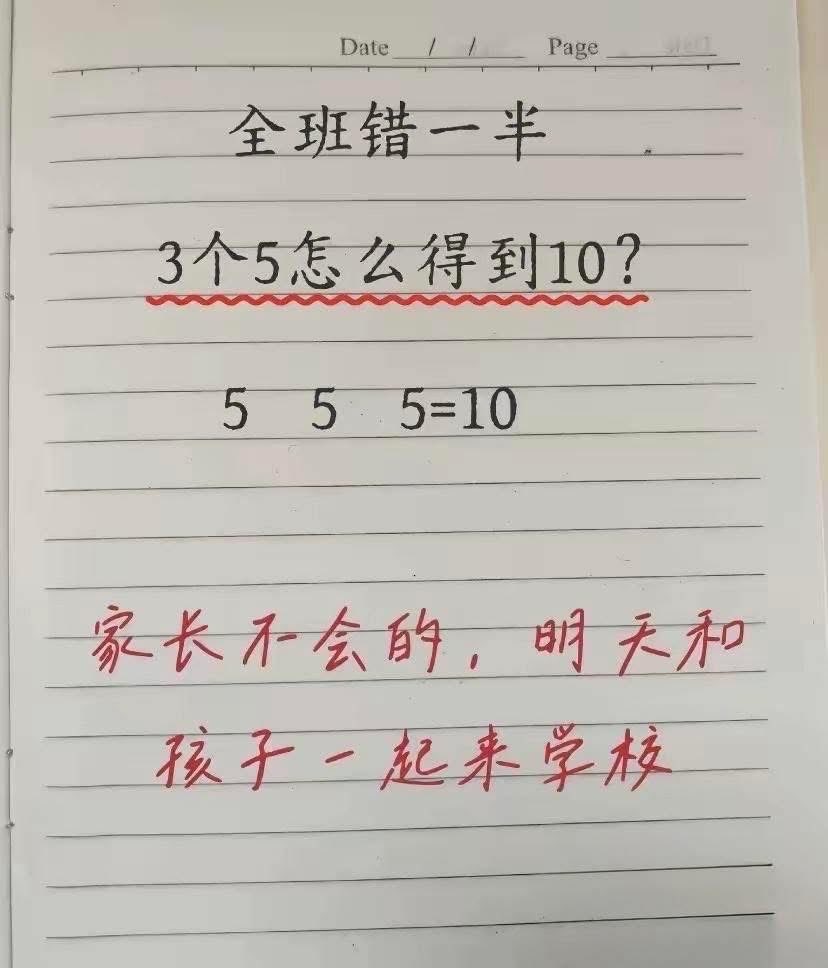 Date / / Page
全班错一半
3个5怎么得到10?
5 5 5=10
家长不会的,明天和
孩子一起来学校